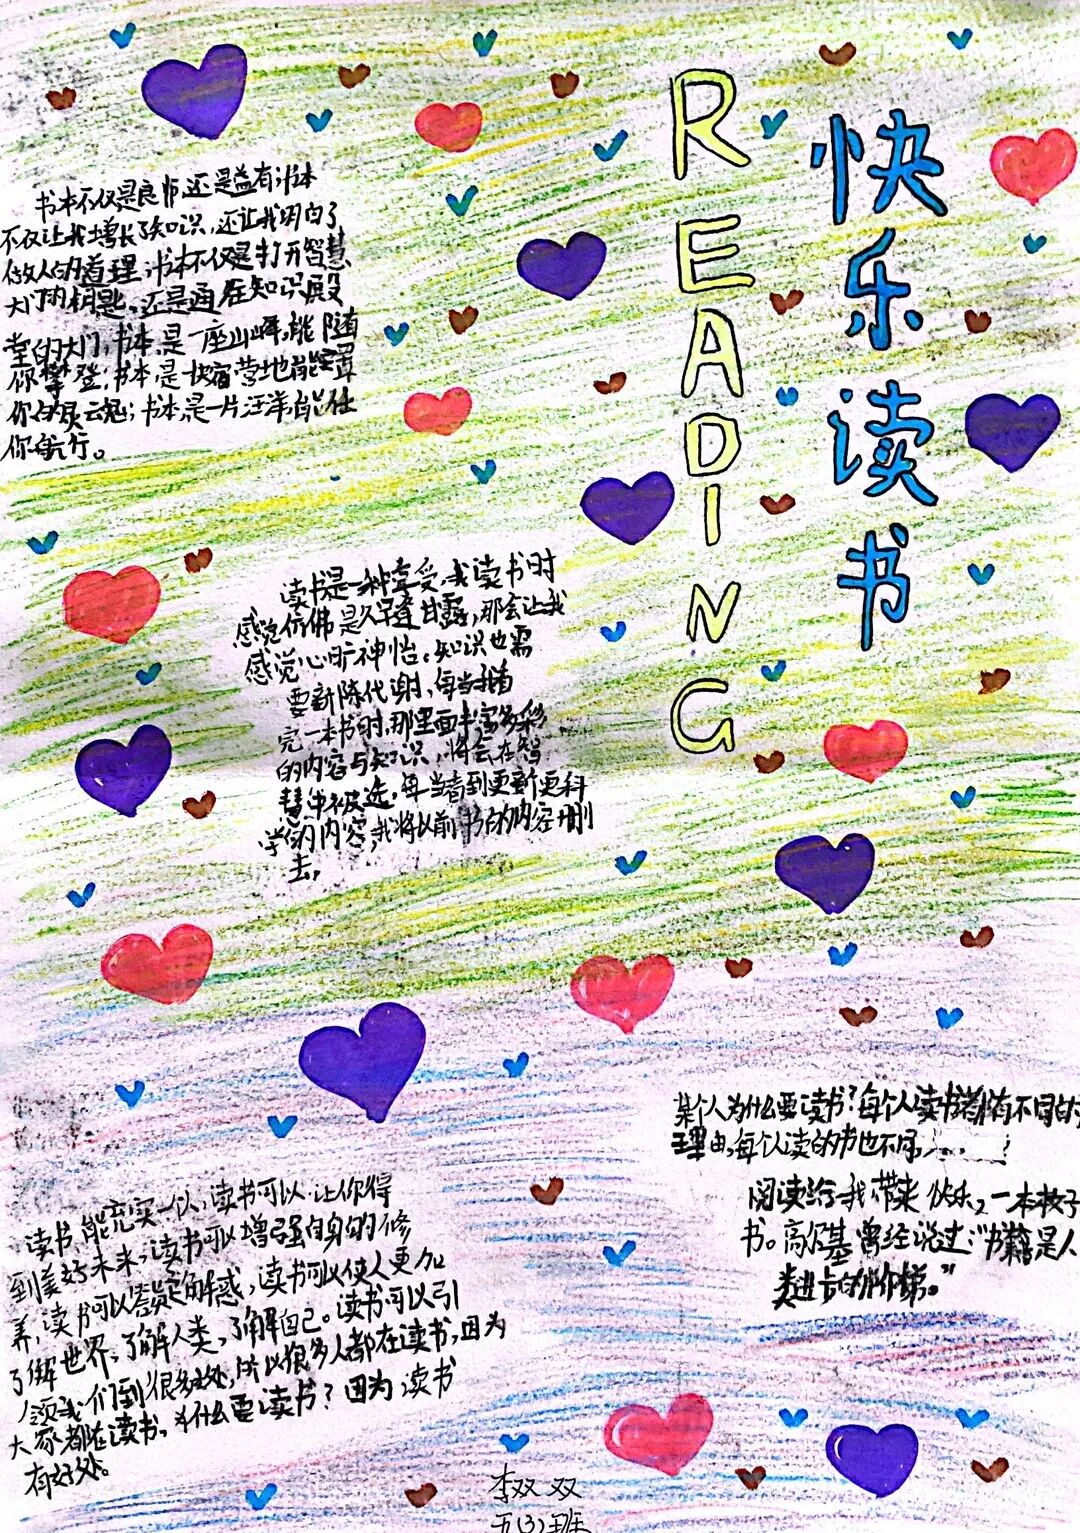 READING
快乐读书
书本不仅是良师,还是益有;书本
不仅让我增长了知识,还让我明白了
做人的道理;书本不仅是打开智慧
大门的钥匙,还是通往知识殿
堂的大门;书本,是一座山峰,能随
你攀登;书本,是快宿营地,能安置
你的灵魂;书本,是一片汪洋,能任
你航行。
读书是一种享受,我读书时
感觉仿佛是久旱逢甘露,那会让我
感觉心旷神怡。知识也需
要新陈代谢,每当我看
完一本书时,那里面丰富多彩
的内容与知识,将会在智
慧中被选,每当看到更新更科
学的内容,我将以前书的内容删
去。
某个人为什么要读书?每个人读书都有不同的
理由,每个人读的书也不同,
阅读给我带来快乐,一本
书。高尔基曾经说过:“书籍是人
类进步的阶梯。”
读书,能充实一,读书可以让你得
到美好未来,读书可以增强自身的修
养,读书可以答疑解惑,读书可以使人更加
了解世界、了解人类,了解自己。读书可以引
领我们到很多处,所以很多人都在读书,因为
大家都在读书,为什么要读书?因为读书
有好处。
李双双
五(3)班